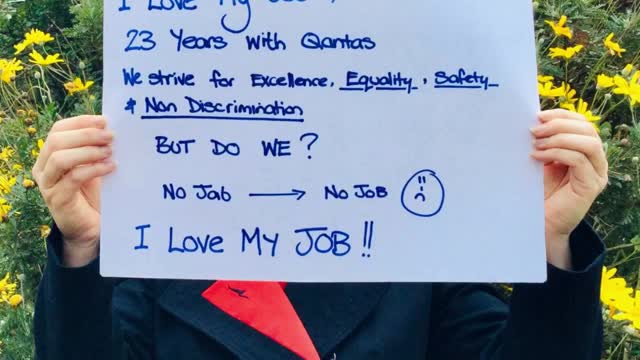 I Love My Job !
23 Years with Qantas
We strive for Excellence, Equality, Safety
& Non Discrimination
BUT DO WE?
No Jab → No JOB
I LOVE MY JOB!!